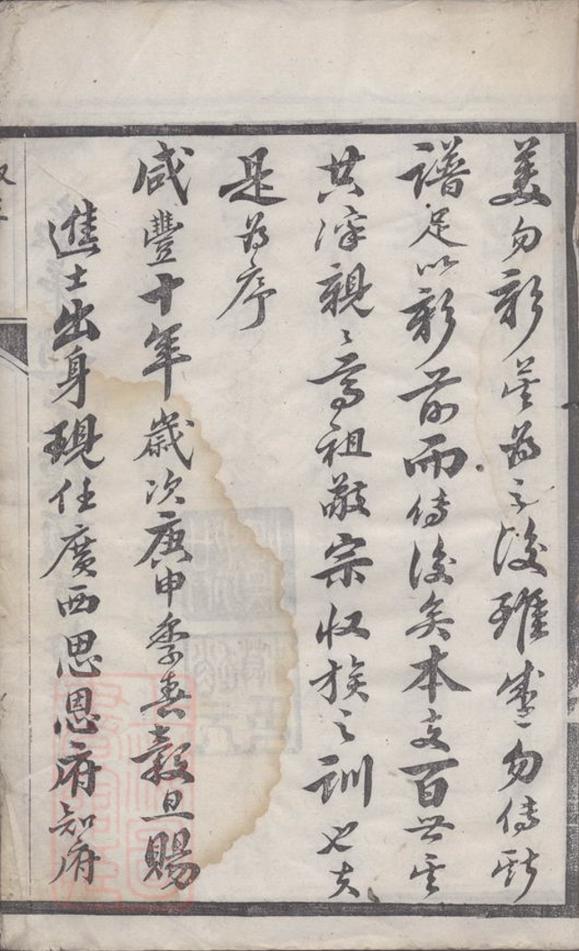 美勿彰莫為之後雖盛勿傳斯
譜足以彰前而傳後矣本支百世其
共深親親尊祖敬宗收族之訓也夫
是為序
咸豐十年歲次庚申季春穀旦賜
進士出身現任廣西思恩府知府